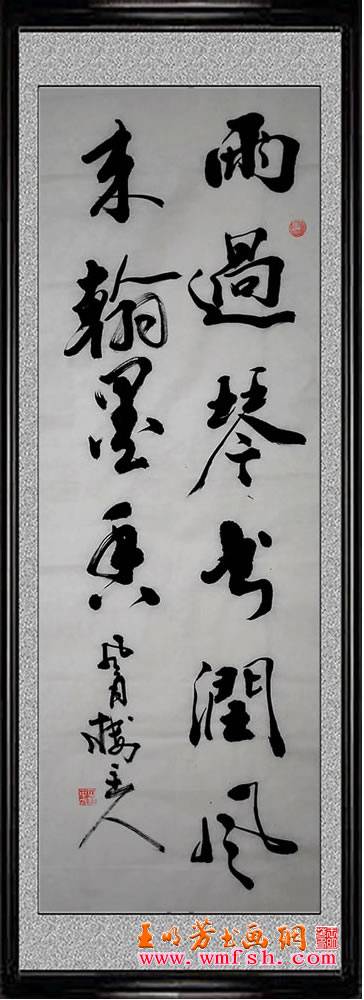 雨過琴书潤风
来翰墨香
风月楼主人
王明芳书画网
www.wmfsh.com